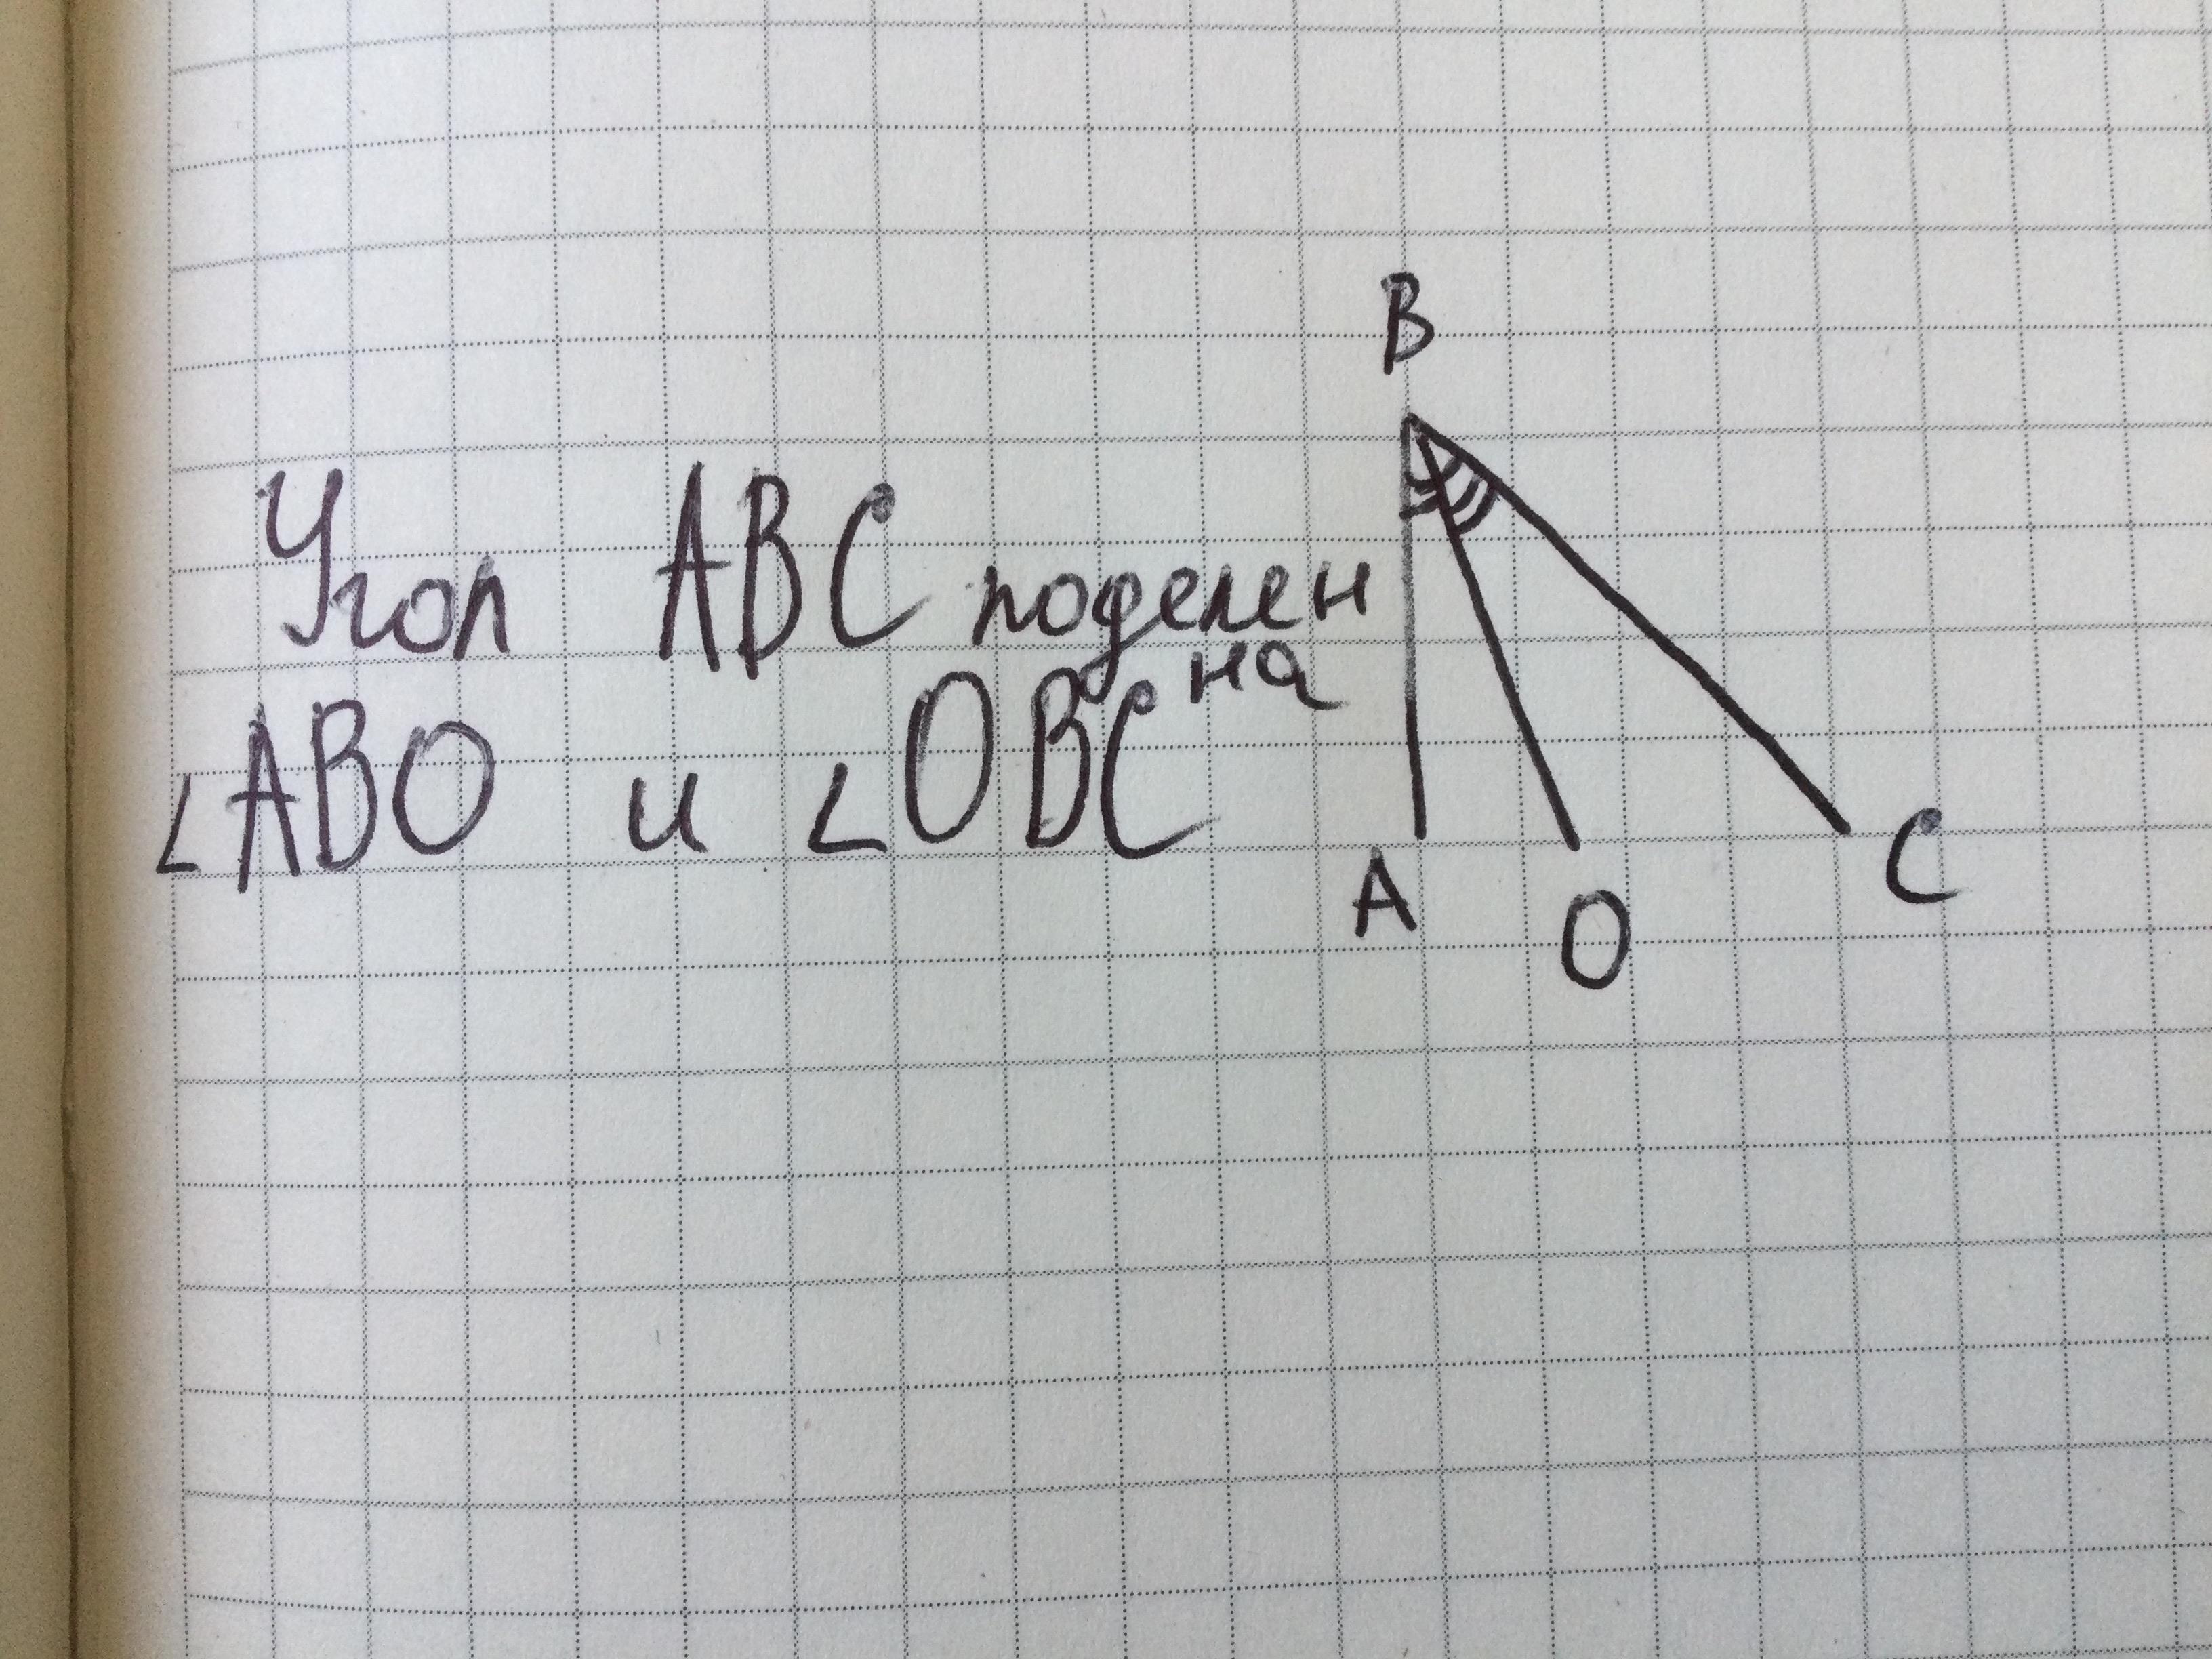 B
Угол ABC поделен
на
∠ABO и ∠OBC
A
O
C